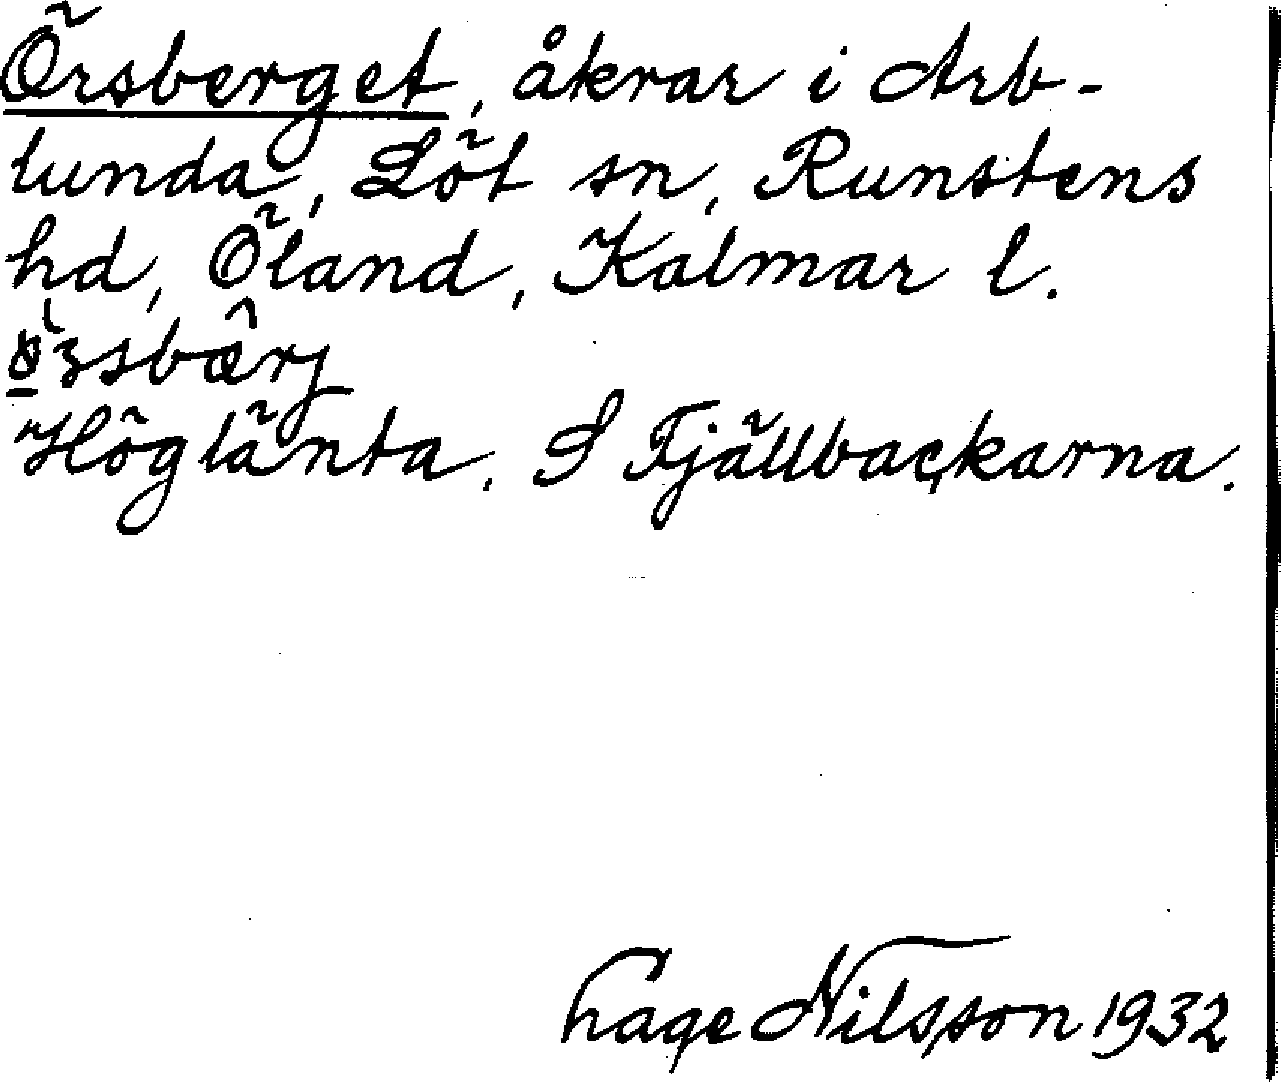 Örsberget, åkrar i Arb-
lunda, Löt sn, Runstens
hd, Öland, Kalmar l.
Höglänta. S Fjällbackarna.
Nilsson 1932